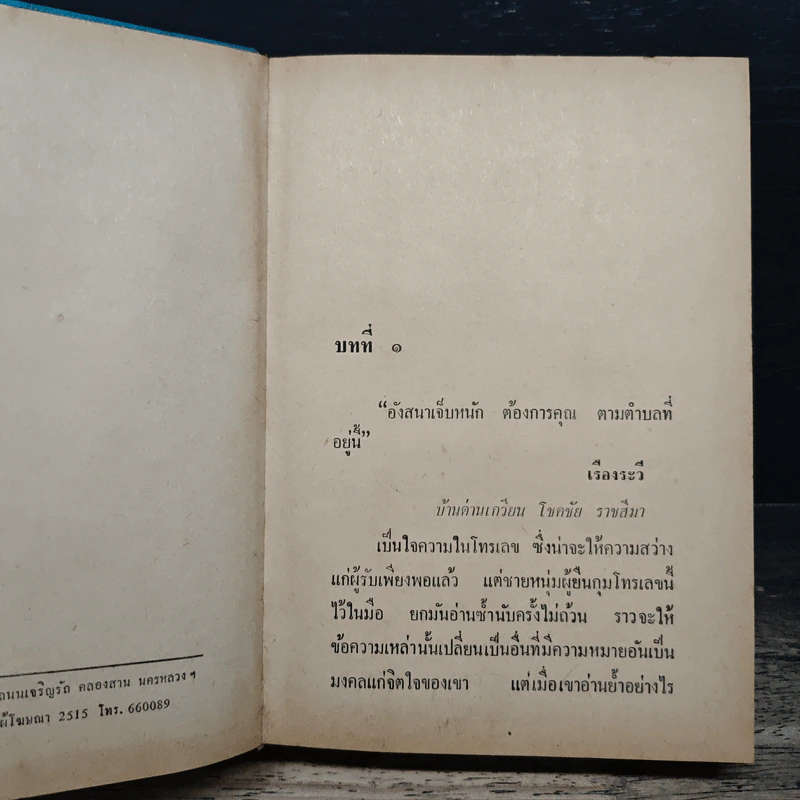 ถนนเจริญรัถ คลองสาน นครหลวง ฯ
ผู้โฆษณา 2515 โทร. 660089
บทที่ ๑
“อังสนาเจ็บหนัก ต้องการคุณ ตามตำบลที่
อยู่นี้”
เรืองระวี
บ้านด่านเกวียน โชคชัย ราชสีมา
เป็นใจความในโทรเลข ซึ่งน่าจะให้ความสว่าง
แก่ผู้รับเพียงพอแล้ว แต่ชายหนุ่มผู้ยืนกุมโทรเลขนี้
ไว้ในมือ ยกมันอ่านซ้ำนับครั้งไม่ถ้วน ราวจะให้
ข้อความเหล่านั้นเปลี่ยนเป็นอื่นที่มีความหมายอันเป็น
มงคลแก่จิตใจของเขา แต่เมื่อเขาอ่านย้ำอย่างไร